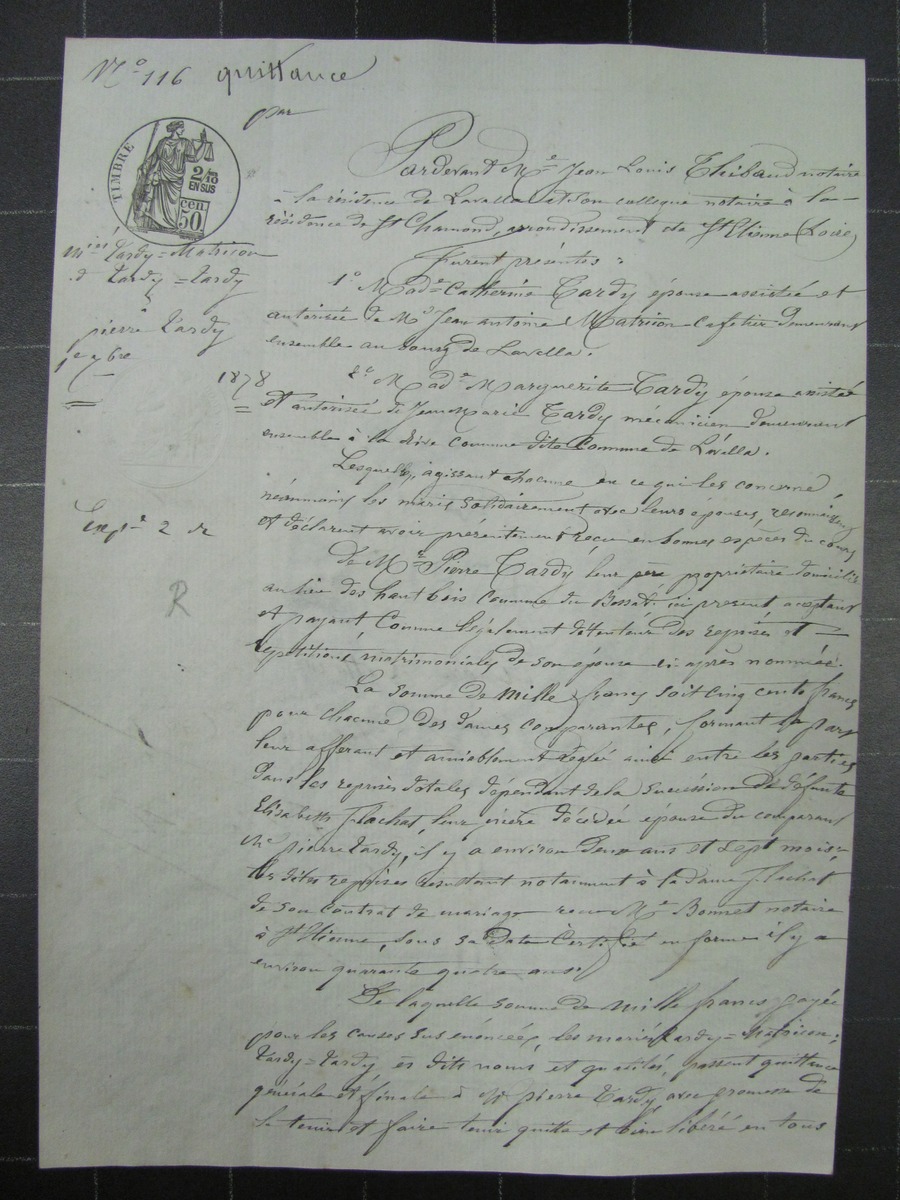 N° 116 quittance
par
TIMBRE
2/10
EN SUS
cen.
50
mins Tardy=Matricon
et Tardy=Tardy
à
pierre Tardy
1er 7bre
1878
Expée 2 r
R
Pardevant Me Jean Louis Thibaud notaire
à la résidence de Lavalla et son collègue notaire à la
résidence de St Chamond, arrondissement de St Etienne (Loire)
Furent présentes :
1° Made Catherine Tardy épouse assistée et
autorisée de Mr Jean antoine Matricon cafetier demeurant
ensemble au bourg de Lavalla.
2° Made Marguerite Tardy épouse assistée
et autorisée de Jean Marie Tardy mécanicien demeurant
ensemble à la Rive commune dite Commune de Lavalla.
Lesquelles, agissant chacune en ce qui les concerne
néanmoins les maris solidairement avec leurs épouses, reconnaissent
et déclarent avoir présentement reçu en bonnes espèces du cours
De Mr Pierre Tardy leur père propriétaire domicilié
au lieu des haut bois commune du Bessat ici présent acceptant
et payant comme légalement détenteur des reprises et
répétitions matrimoniales de son épouse ci après nommée.
La somme de Mille francs soit cinq cents francs
pour chacune des dames comparantes, formant la part
leur afférant et amiablement réglée ainsi entre les parties
dans les reprises dotales dépendant de la succession de défunte
Elisabeth Flachat, leur mère décédée épouse du comparant
Mr pierre Tardy, il y a environ deux ans et sept mois,
les dites reprises résultant notamment à la dame Flachat
de son contrat de mariage reçu Me Bonnet notaire
à St Etienne, sous sa Date Certifié en forme il y a
environ quarante quatre ans
De laquelle somme de Mille francs payée
pour les causes sus énoncées, les mariés Tardy=Matricon,
Tardy=Tardy, ès dits noms et qualités, passent quittance
générale et finale à Mr pierre Tardy avec promesse de
le tenir et faire tenir quitte et bien libéré en tous